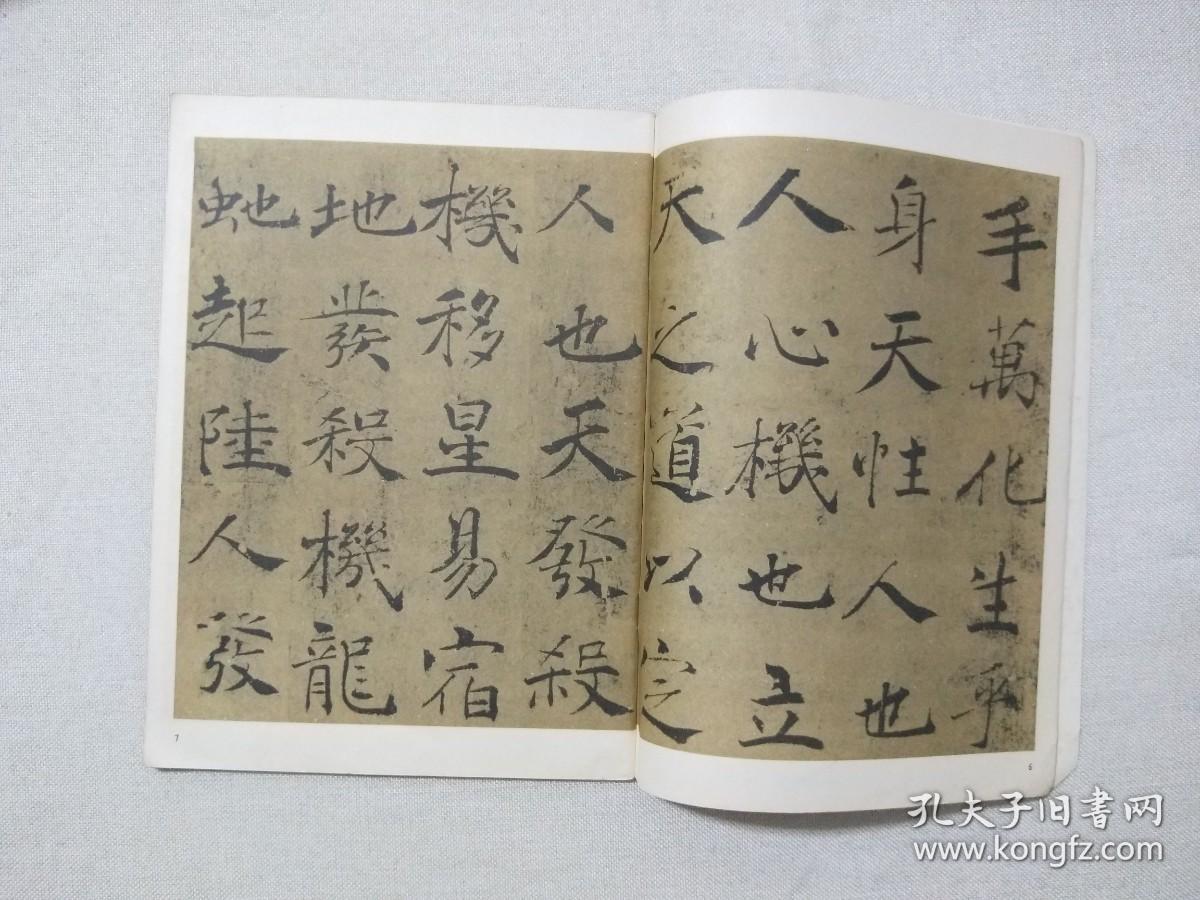 手萬化生乎
身天性人也
人心機也立
天之道以定
人也天發殺
機移星易宿
地發殺機龍
虵起陸人發
6
7
孔夫子旧书网
www.kongfz.com